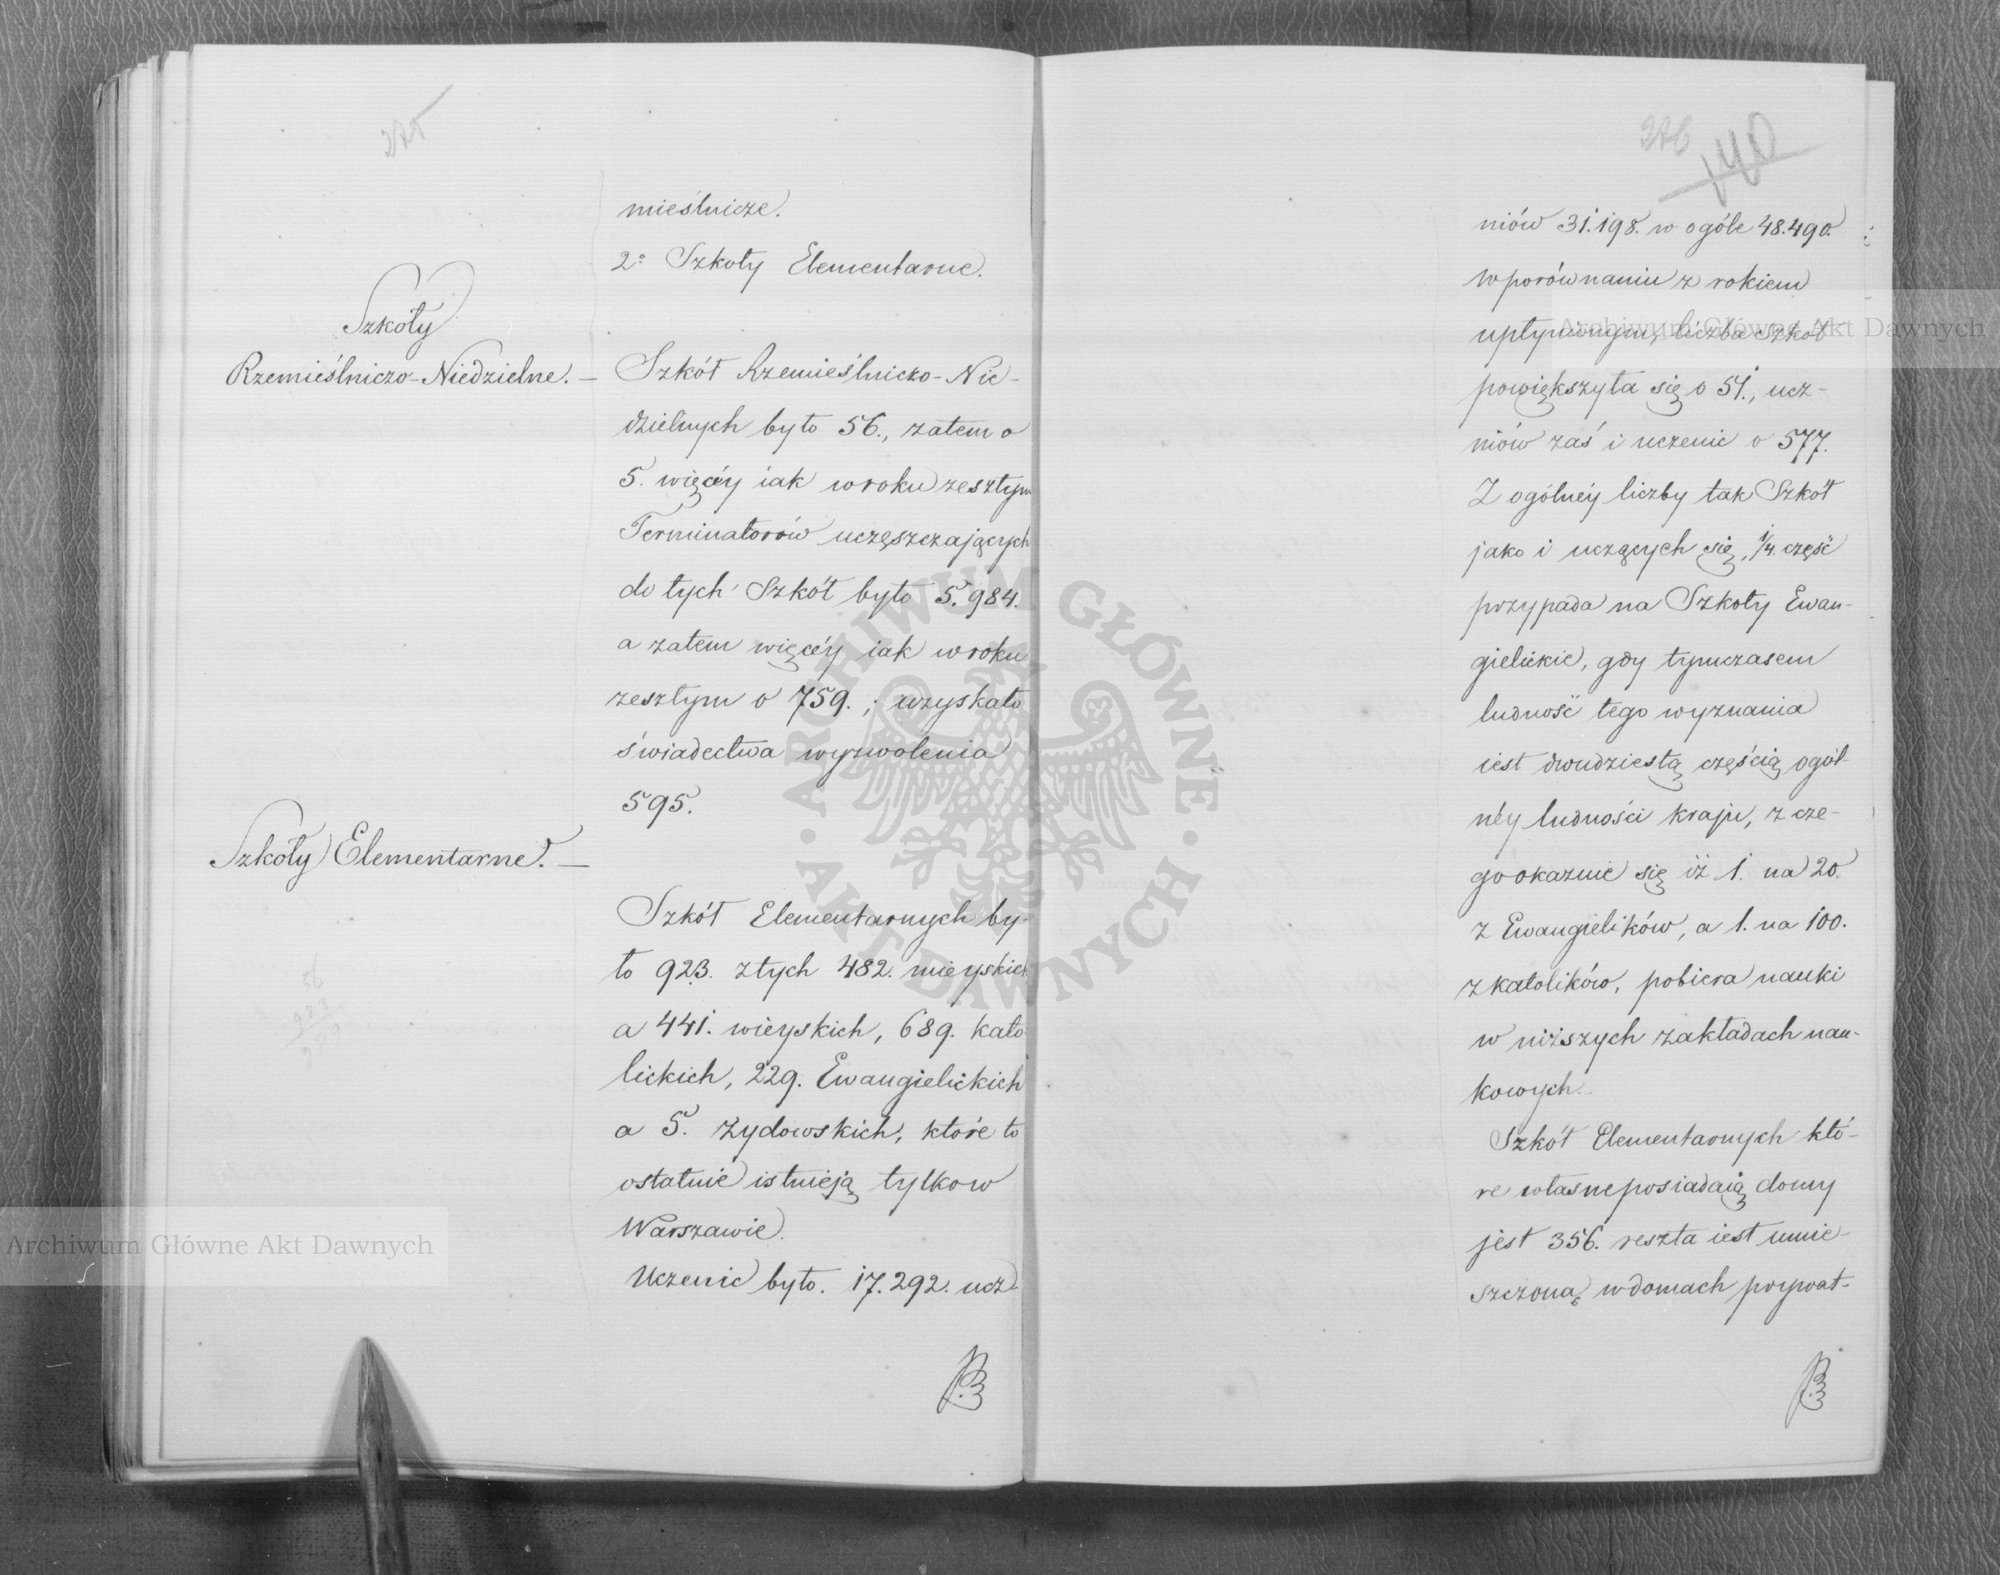 275
mieślnicze.
2º Szkoły Elementarne.
Szkoły
Rzemieślniczo-Niedzielne. —
Szkół Rzemieślniczo-Nie-
dzielnych było 56., zatem o
5. więcéy iak w roku zeszłym
Terminatorów uczęszczających
do tych Szkół było 5.984.
a zatem więcéy iak w roku
zeszłym o 759.; uzyskało
świadectwa wyzwolenia
595.
Szkoły Elementarne. —
Szkół Elementarnych by-
ło 923. z tych 482. mieyskich
a 441. wieyskich, 689. kato
lickich, 229. Ewangielickich
a 5. żydowskich, które to
ostatnie istnieją tylko w
Warszawie.
Uczenic było. 17.292. ucz-
56
923
276
140
niów 31.198. w ogóle 48.490.
w porównaniu z rokiem
upłynionym, liczba Szkół
powiększyła się o 51., ucz-
niów zaś i uczenic o 577.
Z ogólnéy liczby tak Szkół
jako i uczących się, 1/4. część
przypada na Szkoły Ewan-
gielickie, gdy tymczasem
ludność tego wyznania
iest dwudziestą częścią ogól-
néy ludności kraju, z cze-
go okazuie się iż 1. na 20.
z Ewangielików, a 1. na 100.
z katolików, pobiera nauki
w niższych zakładach nau-
kowych.
Szkół Elementarnych któ-
re własne posiadaią domy
jest 356. reszta iest umie-
szczoną w domach prywat-
Archiwum Główne Akt Dawnych
Archiwum Główne Akt Dawnych
ARCHIWUM GŁÓWNE · AKT DAWNYCH ·